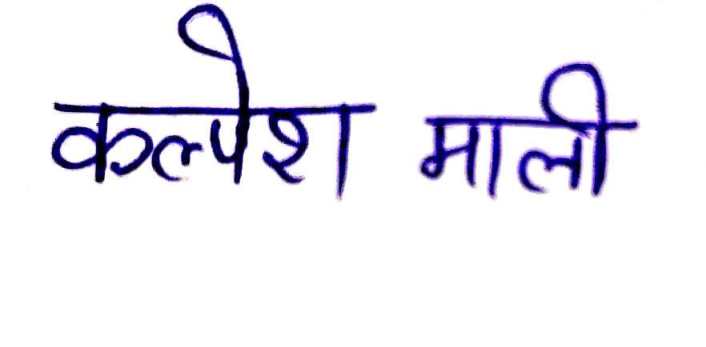 कल्पेश माली